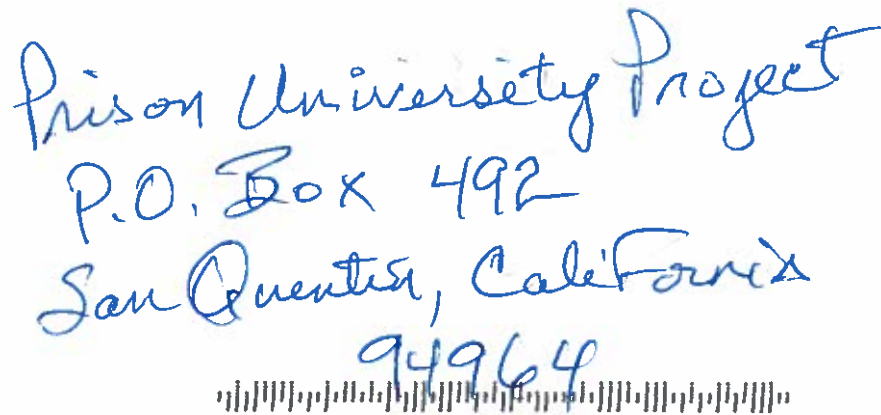 Prison University Project
P.O. Box 492
San Quentin, California
94964